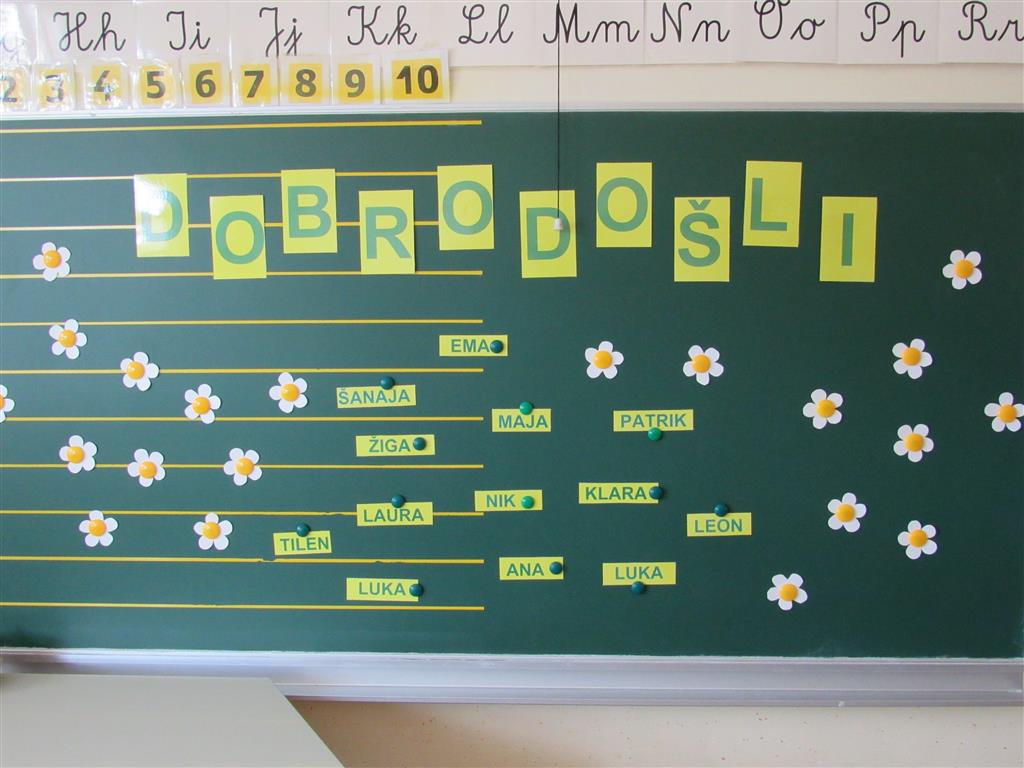 Hh Ii Jj Kk Ll Mm Nn Oo Pp Rr
2 3 4 5 6 7 8 9 10
DOBRODOŠLI
EMA
ŠANAJA
MAJA
PATRIK
ŽIGA
LAURA
NIK
KLARA
LEON
TILEN
ANA
LUKA
LUKA